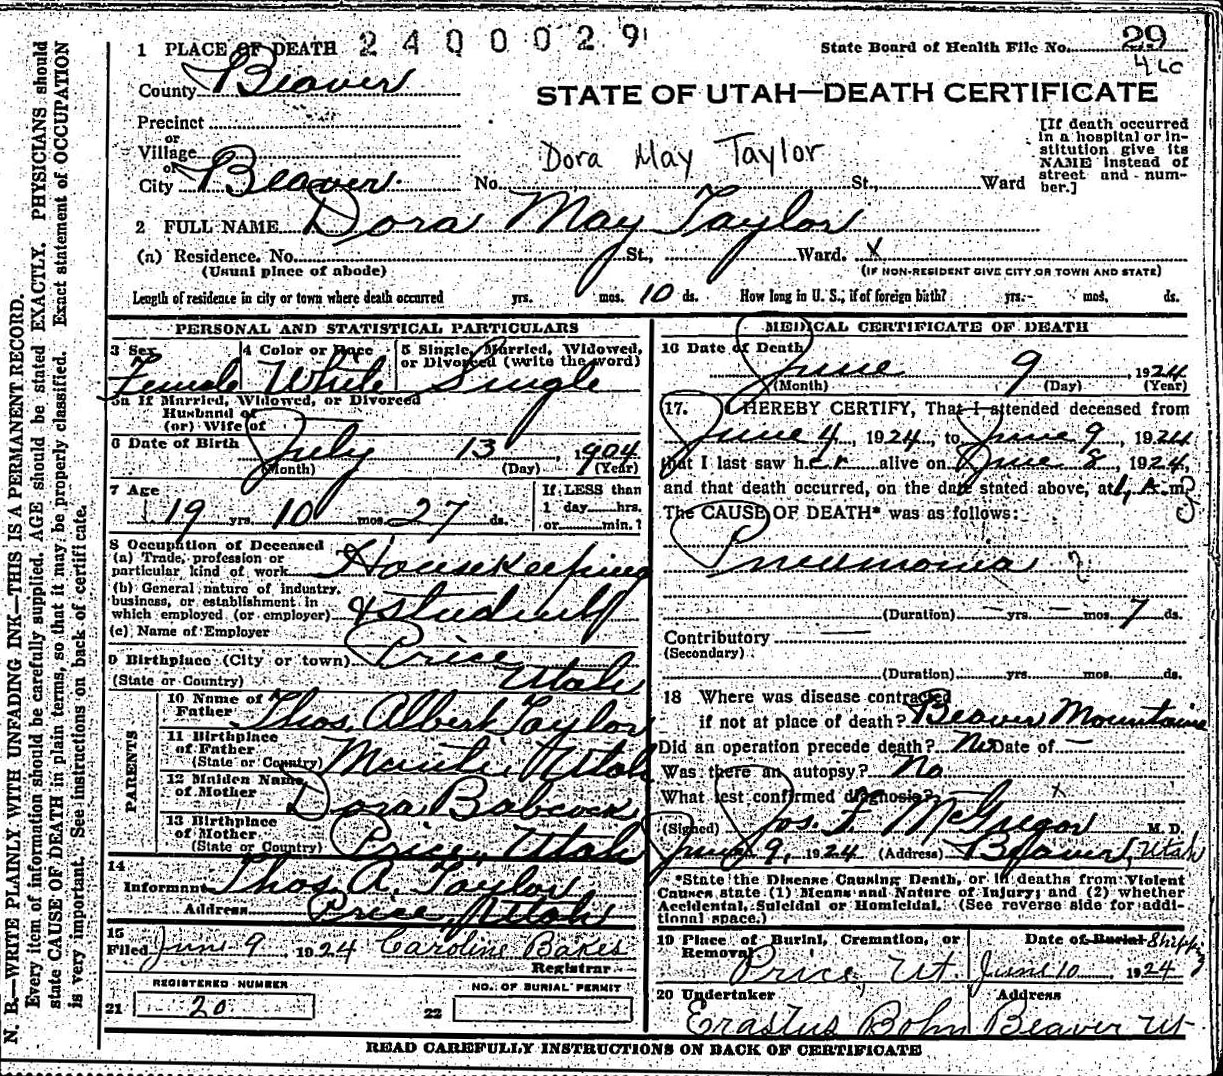 1 PLACE OF DEATH 2400029
State Board of Health File No. 29
County Beaver
STATE OF UTAH—DEATH CERTIFICATE
Precinct
or
Village
or
City Beaver
Dora May Taylor
No. St., Ward
[If death occurred
in a hospital or in-
stitution give its
NAME instead of
street and num-
ber.]
2 FULL NAME Dora May Taylor
(a) Residence. No. St., Ward. X
(Usual place of abode)
(IF NON-RESIDENT GIVE CITY OR TOWN AND STATE)
Length of residence in city or town where death occurred yrs. mos. 10 ds. How long in U. S., if of foreign birth? yrs. mos. ds.
PERSONAL AND STATISTICAL PARTICULARS
3 Sex Female
4 Color or Race White
5 Single, Married, Widowed,
or Divorced (write the word)
Single
5a If Married, Widowed, or Divorced
Husband of
(or) Wife of
6 Date of Birth July 13, 1904
(Month) (Day) (Year)
7 Age
19 yrs. 10 mos. 27 ds.
If LESS than
1 day hrs.
or min.?
8 Occupation of Deceased
(a) Trade, profession or
particular kind of work Housekeeping
(b) General nature of industry,
business, or establishment in
which employed (or employer) & studying
(c) Name of Employer
9 Birthplace (City or town) Price
(State or Country) Utah
PARENTS
10 Name of
Father Thos. Albert Taylor
11 Birthplace
of Father
(State or Country) Manti, Utah
12 Maiden Name
of Mother Dora Babcock
13 Birthplace
of Mother
(State or Country) Price, Utah
14
Informant Thos. A. Taylor
Address Price, Utah
15
Filed June 9, 1924 Caroline Bakes
Registrar
REGISTERED NUMBER
21 20
NO. OF BURIAL PERMIT
22
MEDICAL CERTIFICATE OF DEATH
16 Date of Death
June 9, 1924
(Month) (Day) (Year)
17. I HEREBY CERTIFY, That I attended deceased from
June 4, 1924, to June 9, 1924
that I last saw her alive on June 8, 1924,
and that death occurred, on the date stated above, at m.
The CAUSE OF DEATH* was as follows:
Pneumonia ?
(Duration) — yrs. — mos. 7 ds.
Contributory —
(Secondary)
(Duration) yrs. mos. ds.
18 Where was disease contracted
if not at place of death? Beaver Mountains
Did an operation precede death? No Date of —
Was there an autopsy? No
What test confirmed diagnosis? x
(Signed) Jos. F. McGregor M. D.
June 9, 1924 (Address) Beaver, Utah
*State the Disease Causing Death, or in deaths from Violent
Causes state (1) Means and Nature of Injury; and (2) whether
Accidental, Suicidal or Homicidal. (See reverse side for addi-
tional space.)
19 Place of Burial, Cremation, or
Removal
Price, Ut.
Date of Burial Shipping
June 10 1924
20 Undertaker
Erastus Bohn
Address
Beaver Ut
READ CAREFULLY INSTRUCTIONS ON BACK OF CERTIFICATE
N. B.—WRITE PLAINLY WITH UNFADING INK—THIS IS A PERMANENT RECORD.
Every item of information should be carefully supplied. AGE should be stated EXACTLY. PHYSICIANS should
state CAUSE OF DEATH in plain terms, so that it may be properly classified. Exact statement of OCCUPATION
is very important. See instructions on back of certificate.